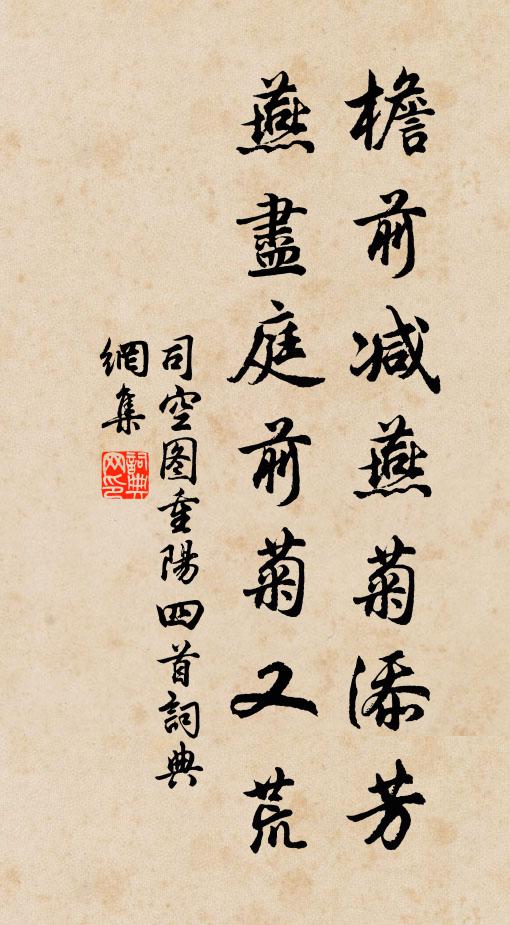 檐前減燕菊添芳
燕盡庭前菊又荒
司空图重陽四首詞典
網集
詞典網印